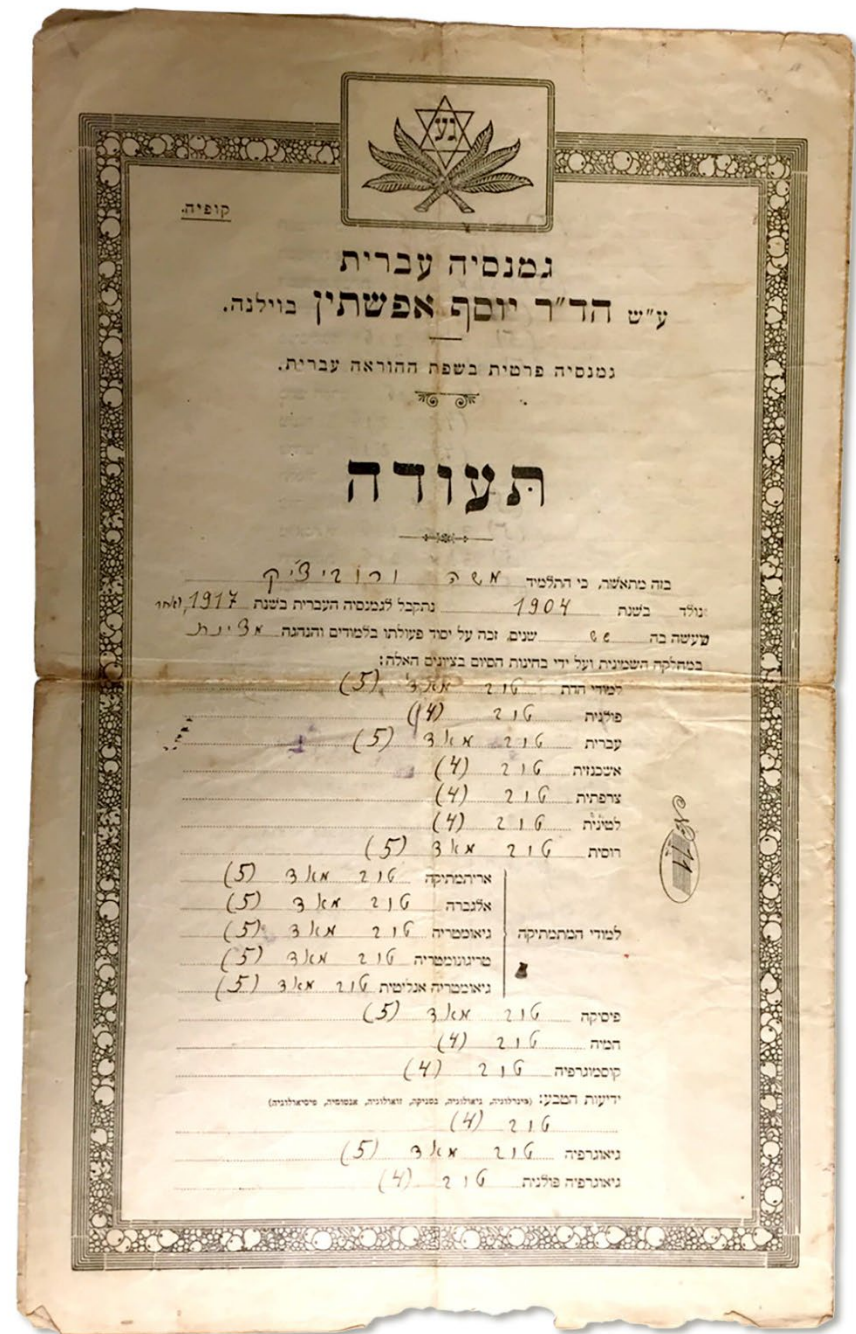 גע
קופיה.
גמנסיה עברית
ע"ש הד"ר יוסף אפשתין בוילנה.
גמנסיה פרטית בשפת ההוראה עברית.
תעודה
בזה מתאשר, כי התלמיד משה ורוביצ'יק
נולד בשנת 1904 נתקבל לגמנסיה העברית בשנת 1917, ואחר
שעשה בה שש שנים, זכה על יסוד פעולתו בלמודים והנהגה מצוינת
במחלקה השמינית ועל ידי בחינות הסיום בציונים האלה:
למודי הדת טוב מאד (5)
פולנית טוב (4)
עברית טוב מאד (5)
אשכנזית טוב (4)
צרפתית טוב (4)
לטינית טוב (4)
רוסית טוב מאד (5)
למודי המתמטיקה
אריתמתיקה טוב מאד (5)
אלגברה טוב מאד (5)
גיאומטריה טוב מאד (5)
טריגונומטריה טוב מאד (5)
גיאומטריה אנליטית טוב מאד (5)
פיסיקה טוב מאד (5)
חמיה טוב (4)
קוסמוגרפיה טוב (4)
ידיעות הטבע: (מינרלוגיה, גיאולוגיה, בטניקה, זואולוגיה, אנטומיה, פיסיאולוגיה)
טוב (4)
גיאוגרפיה טוב מאד (5)
גיאוגרפיה פולנית טוב (4)
№ 11